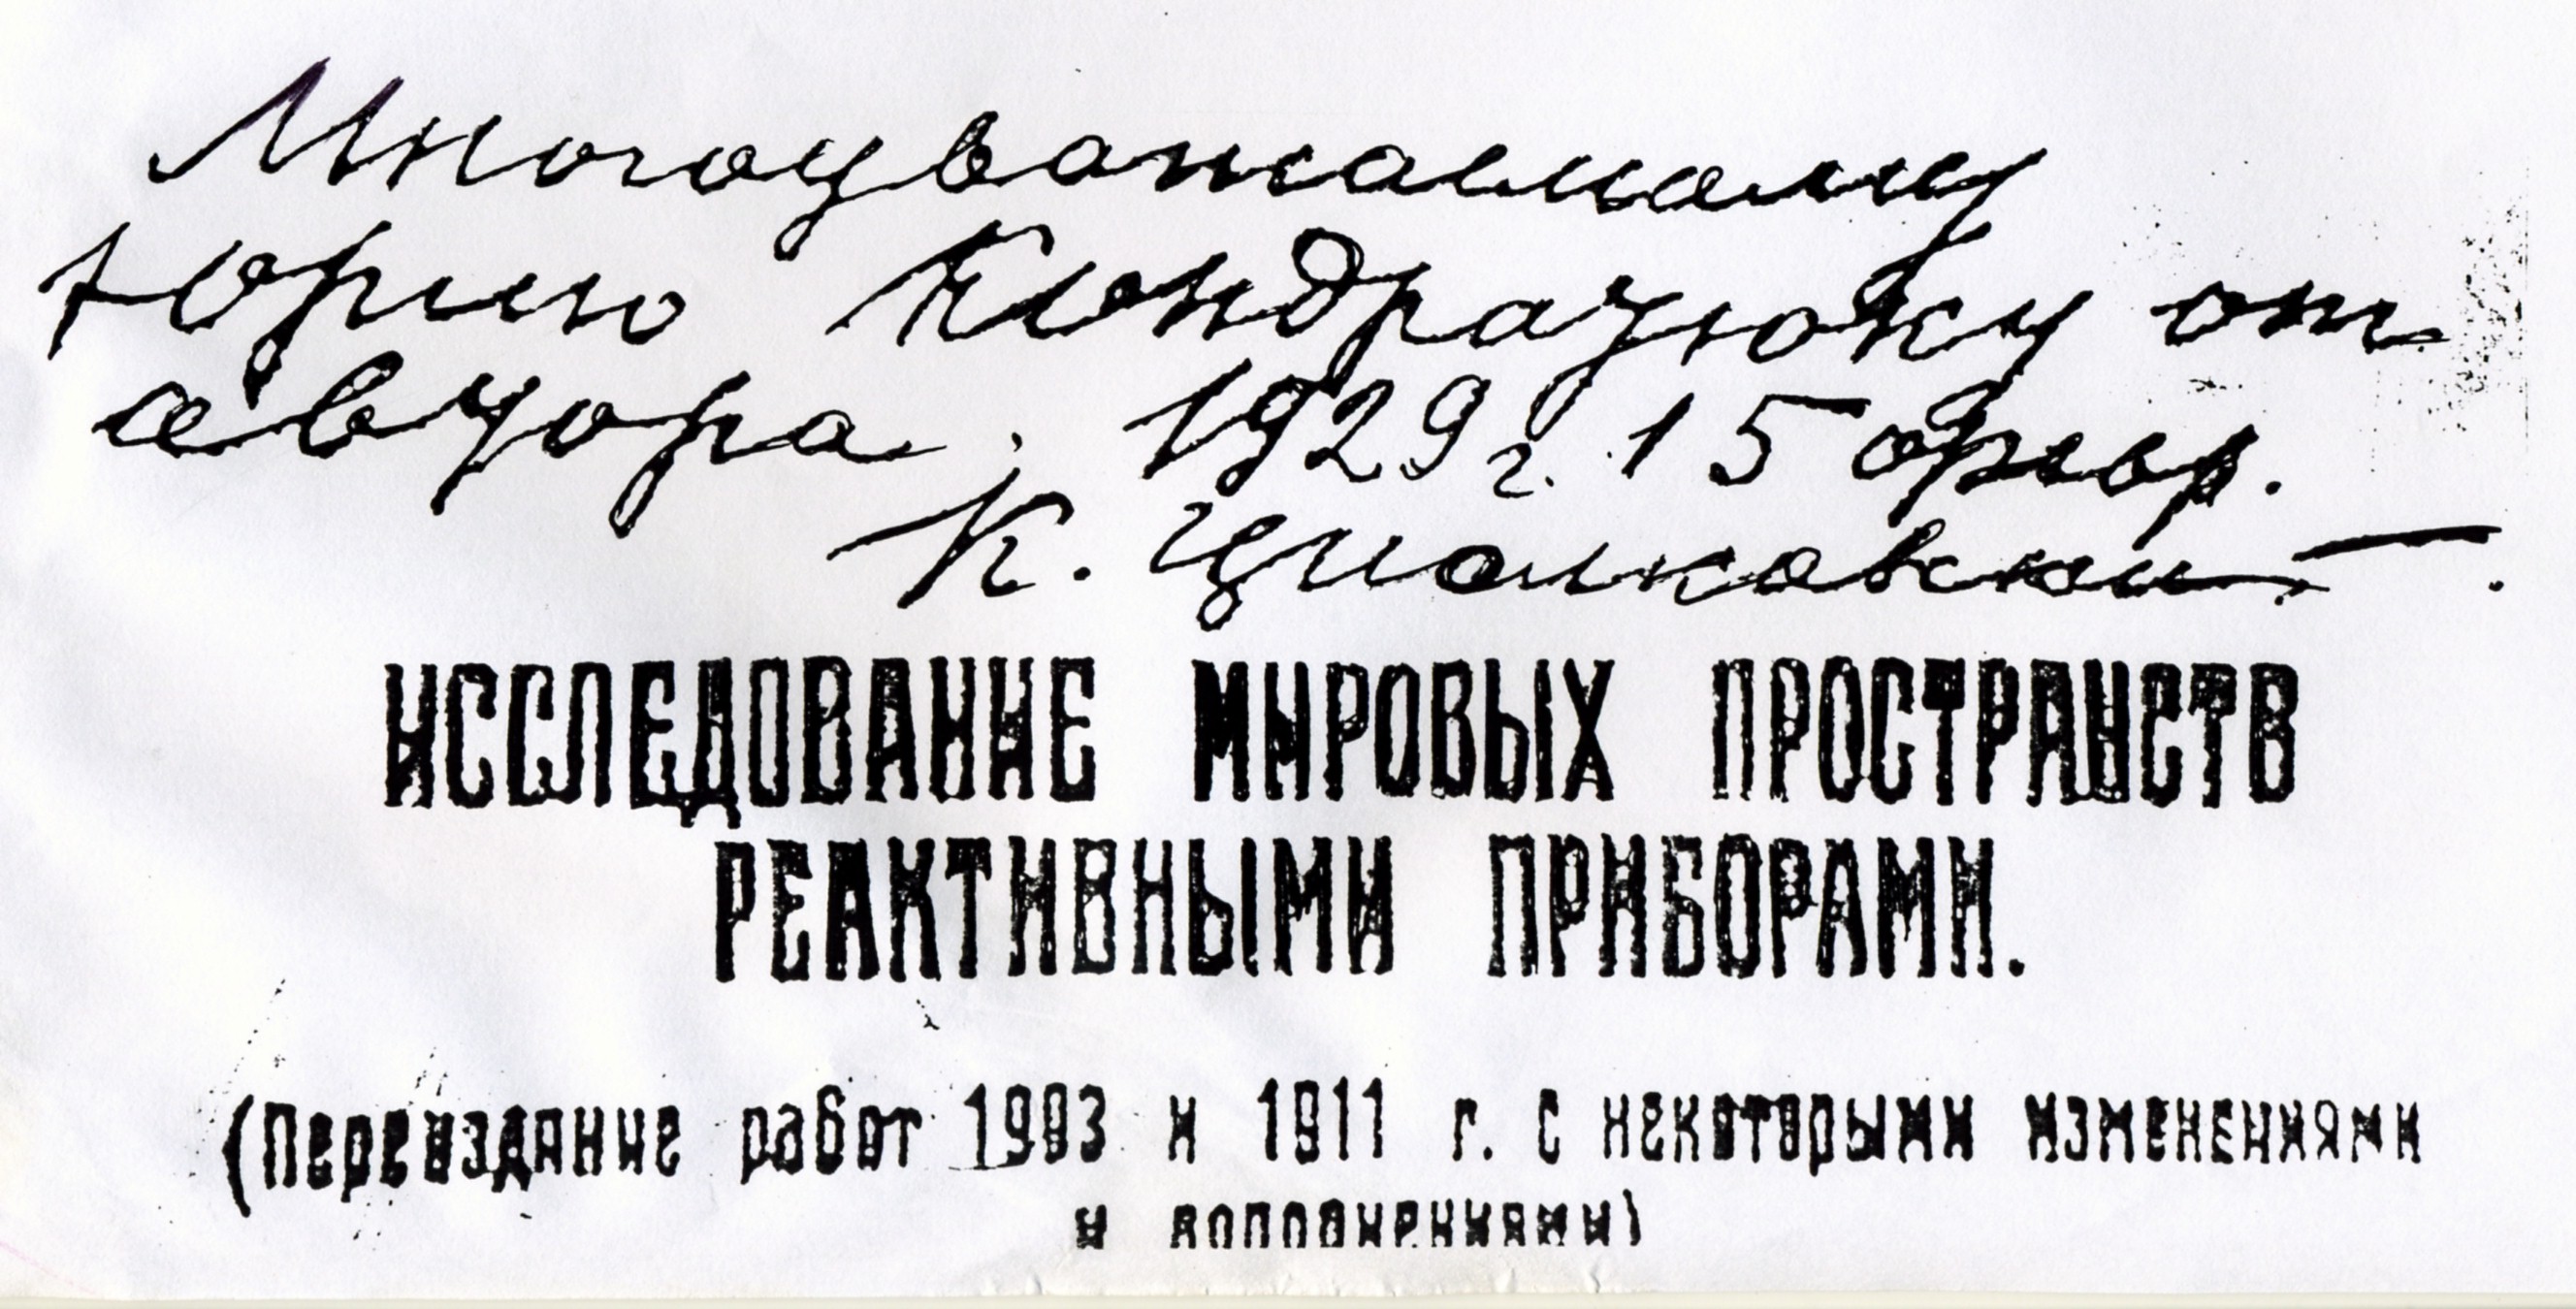 Многоуважаемому
Юрию Кондратюку от
автора. 1929 г. 15 февр.
К. Циолковский.
ИССЛЕДОВАНИЕ МИРОВЫХ ПРОСТРАНСТВ
РЕАКТИВНЫМИ ПРИБОРАМИ.
(Переиздание работ 1903 и 1911 г. с некоторыми изменениями
и дополнениями)